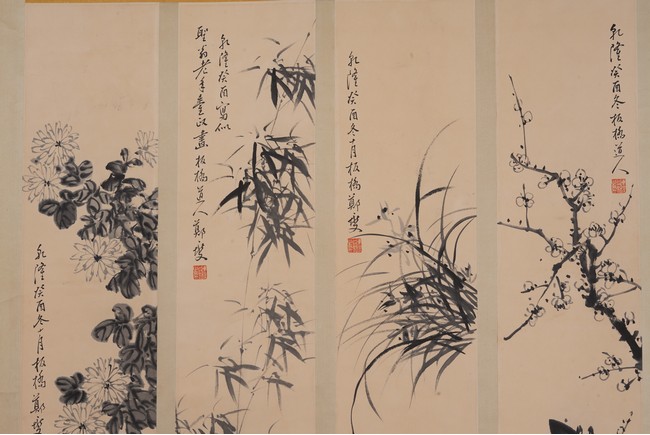 乾隆癸酉冬板橋道人
乾隆癸酉冬十月板橋鄭燮
乾隆癸酉寫似
聖翁老年臺政畫板橋道人鄭燮
乾隆癸酉冬十月板橋鄭燮